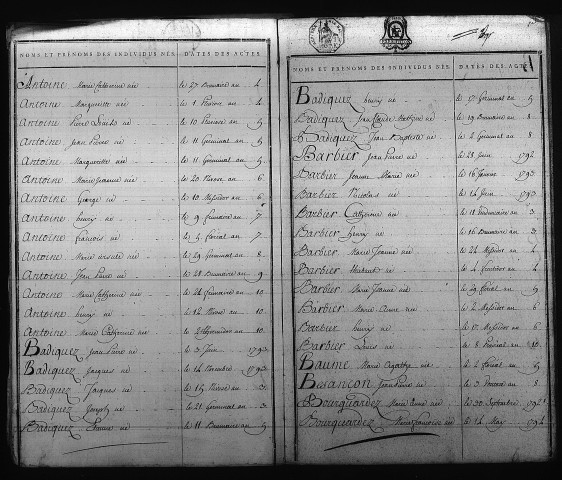 NOMS ET PRÉNOMS DES INDIVIDUS NÉS. DATES DES ACTES.
Antoine Marie Catherine née le 27 Brumaire an 4
Antoine Marguerite née le 1 Ventose an 4
Antoine Pierre Louis né le 10 an 5
Antoine Jean Pierre né le 11 Germinal an 5
Antoine Marguerite née le 11 Germinal an 5
Antoine Marie Jeanne née le 20 Nivose an 6
Antoine George né le 10 Messidor an 6
Antoine henry né le 19 frimaire an 7
Antoine francois né le 5 floréal an 7
Antoine Marie ursule né le 29 Germinal an 8
Antoine Jean Pierre né le 28 Brumaire an 9
Antoine Marie Catherine née le 24 frimaire an 10
Antoine henry né le 12 Nivose an 10
Antoine Marie Catherine née an 10
Badiquez Jean Pierre né le 3 Juin 1793
Badiquez Jacques né le 14 Novembre 1793
Badiquez Jacques né le 15 Nivose an 3
Badiquez Joseph né le 21 Germinal an 3
Badiquez né le 11 Brumaire an 5
NOMS ET PRÉNOMS DES INDIVIDUS NÉS. DATES DES ACTES.
Badiquez henry né le 17 Germinal an 5
Badiquez Jean Claude né le 19 Brumaire an 8
Badiquez Jean Baptiste né le 2 Germinal an 8
Barbier Jean Pierre né le 28 Juin 1792
Barbier Jeanne Marie née le 16 Janvier 1793
Barbier Nicolas né le 14 Juin 1793
Barbier Catherine née le 18 Vendemiaire an 3
Barbier henry né le 16 Brumaire an 3
Barbier Marie Jeanne née le 24 Messidor an 4
Barbier hubert né le 4 an 4
Barbier Marie Jeanne née le 29 floréal an 5
Barbier Marie Anne née le 2 Messidor an 6
Barbier henry né le 17 Messidor an 6
Barbier Louis né le 8 Prairial an 10
Baume Marie Agathe née le 2 floréal an 5
Besançon Jean Pierre né le 3 Ventose an 8
Bourquardez Marie Anne née le 30 Septembre 1792
Bourquardez Marie francoise née le 14 May 1792